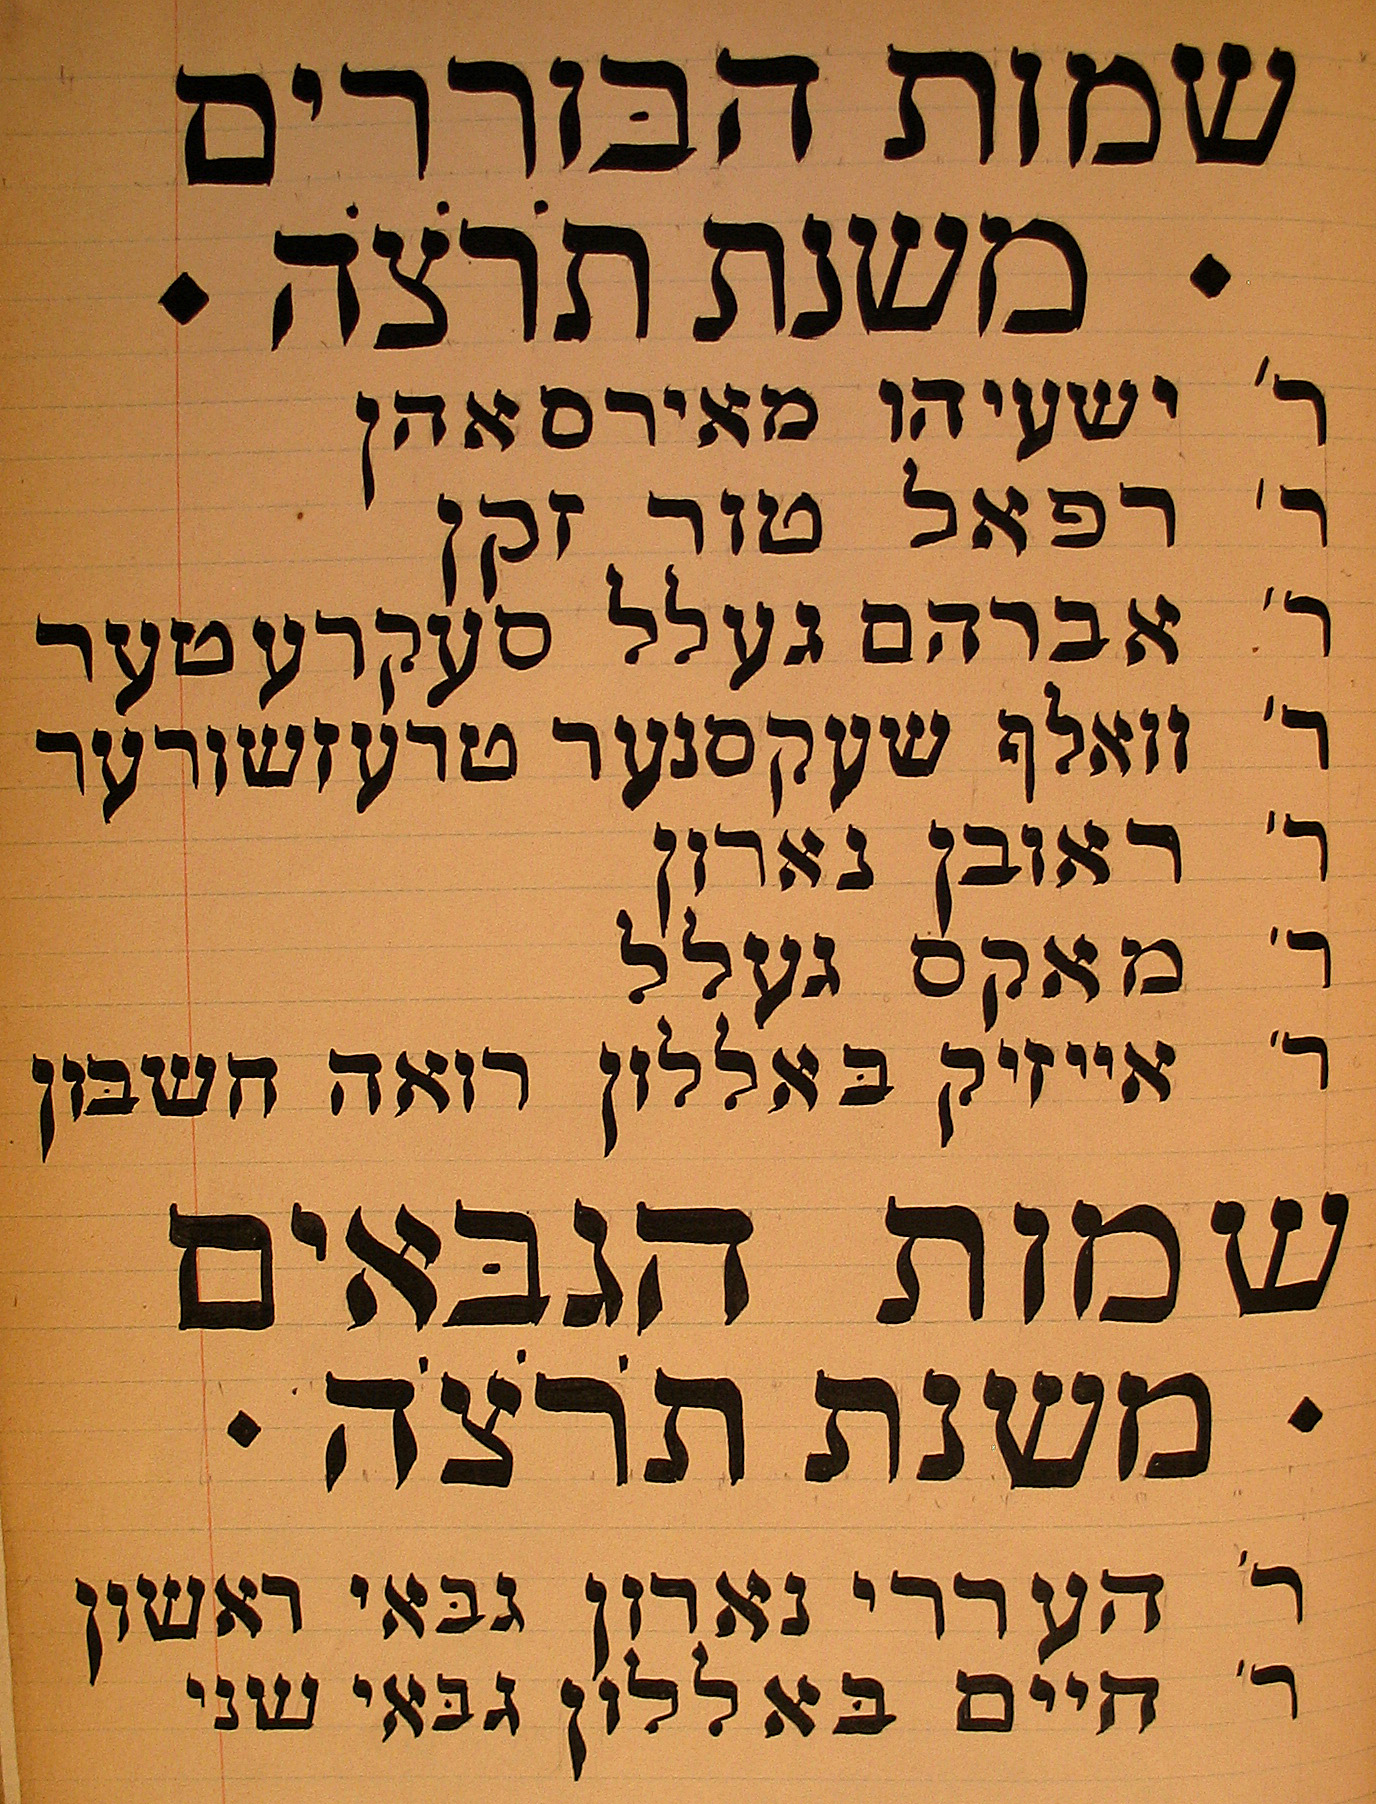 שמות הבּוררים
• משנת תׄרׄצׄה •
ר' ישעיהו מאירסאהן
ר' רפאל טור זקן
ר' אברהם געלל סעקרעטער
ר' וואלף שעקסנער טרעזשורער
ר' ראובן נארון
ר' מאקס געלל
ר' אייזיק בּאללון רואה חשבּון
שמות הגבּאים
• משנת תׄרׄצׄה •
ר' העררי נארון גבּאי ראשון
ר' חיים בּאללון גבּאי שני